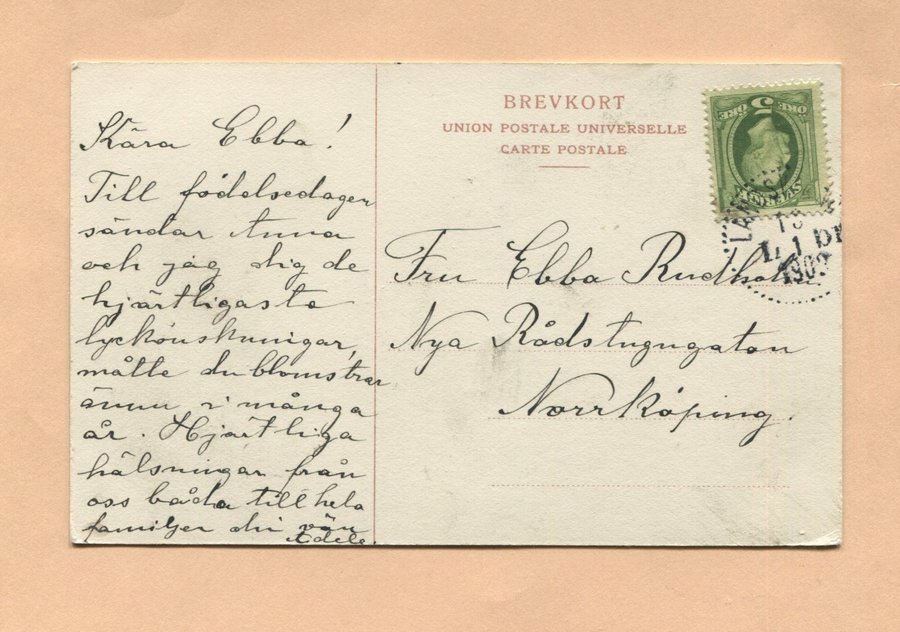 Kära Ebba!
Till födelsedagen
sändar Anna
och jag dig de
hjärtligaste
lyckönskningar,
måtte du blomstrar
ännu i många
år. Hjärtliga
hälsningar från
oss båda till hela
familjen din vän
Adele.
BREVKORT
UNION POSTALE UNIVERSELLE
CARTE POSTALE
5
ÖRE ÖRE
SVERIGE
1909
Fru Ebba Rudholm
Nya Rådstugugatan
Norrköping.